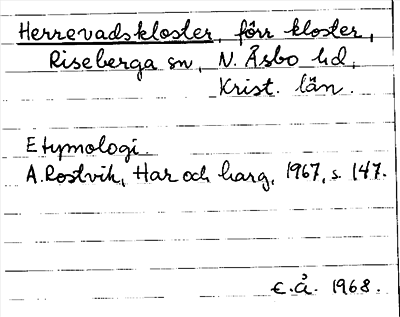 Herrevadskloster, förr kloster,
Riseberga sn, N. Åsbo hd,
Krist. län.
Etymologi.
A. Rostvik, Har och harg, 1967, s. 147.
E.Å. 1968.